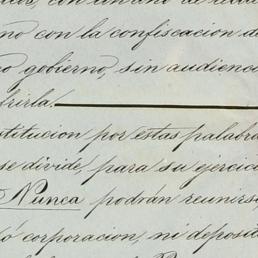 no con la confiscacion de
gobierno, sin audienci
brirla.
titucion por estas palabra
se divide, para su ejercic
Nunca podrán reunirse
ó corporacion, ni deposit